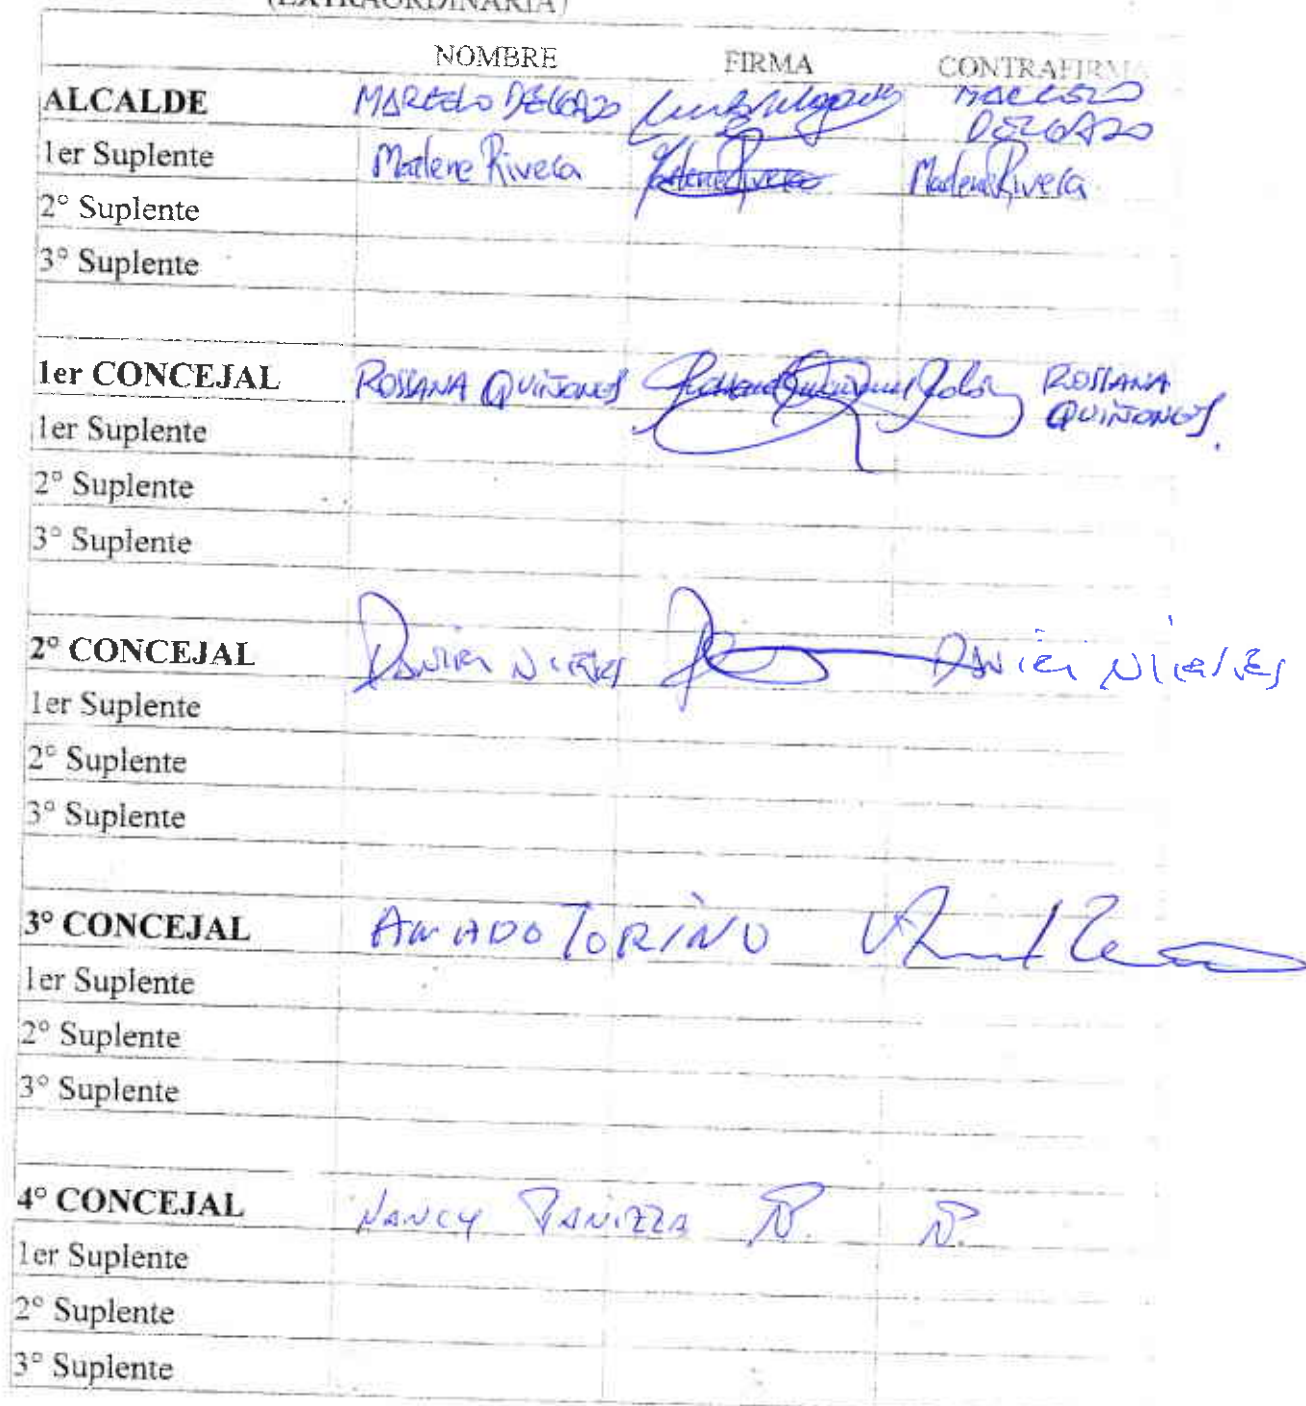 (EXTRAORDINARIA)
NOMBRE FIRMA CONTRAFIRMA
ALCALDE MARCELO DELGADO MARCELO DELGADO
1er Suplente Marlene Rivera Marlene Rivera Marlene Rivera
2° Suplente
3° Suplente
1er CONCEJAL ROSSANA QUIÑONES ROSSANA QUIÑONES.
1er Suplente
2° Suplente
3° Suplente
2° CONCEJAL DANIEL NIEVES DANIEL NIEVES
1er Suplente
2° Suplente
3° Suplente
3° CONCEJAL AMADO TORINO
1er Suplente
2° Suplente
3° Suplente
4° CONCEJAL NANCY PANIZZA NP. NP.
1er Suplente
2° Suplente
3° Suplente